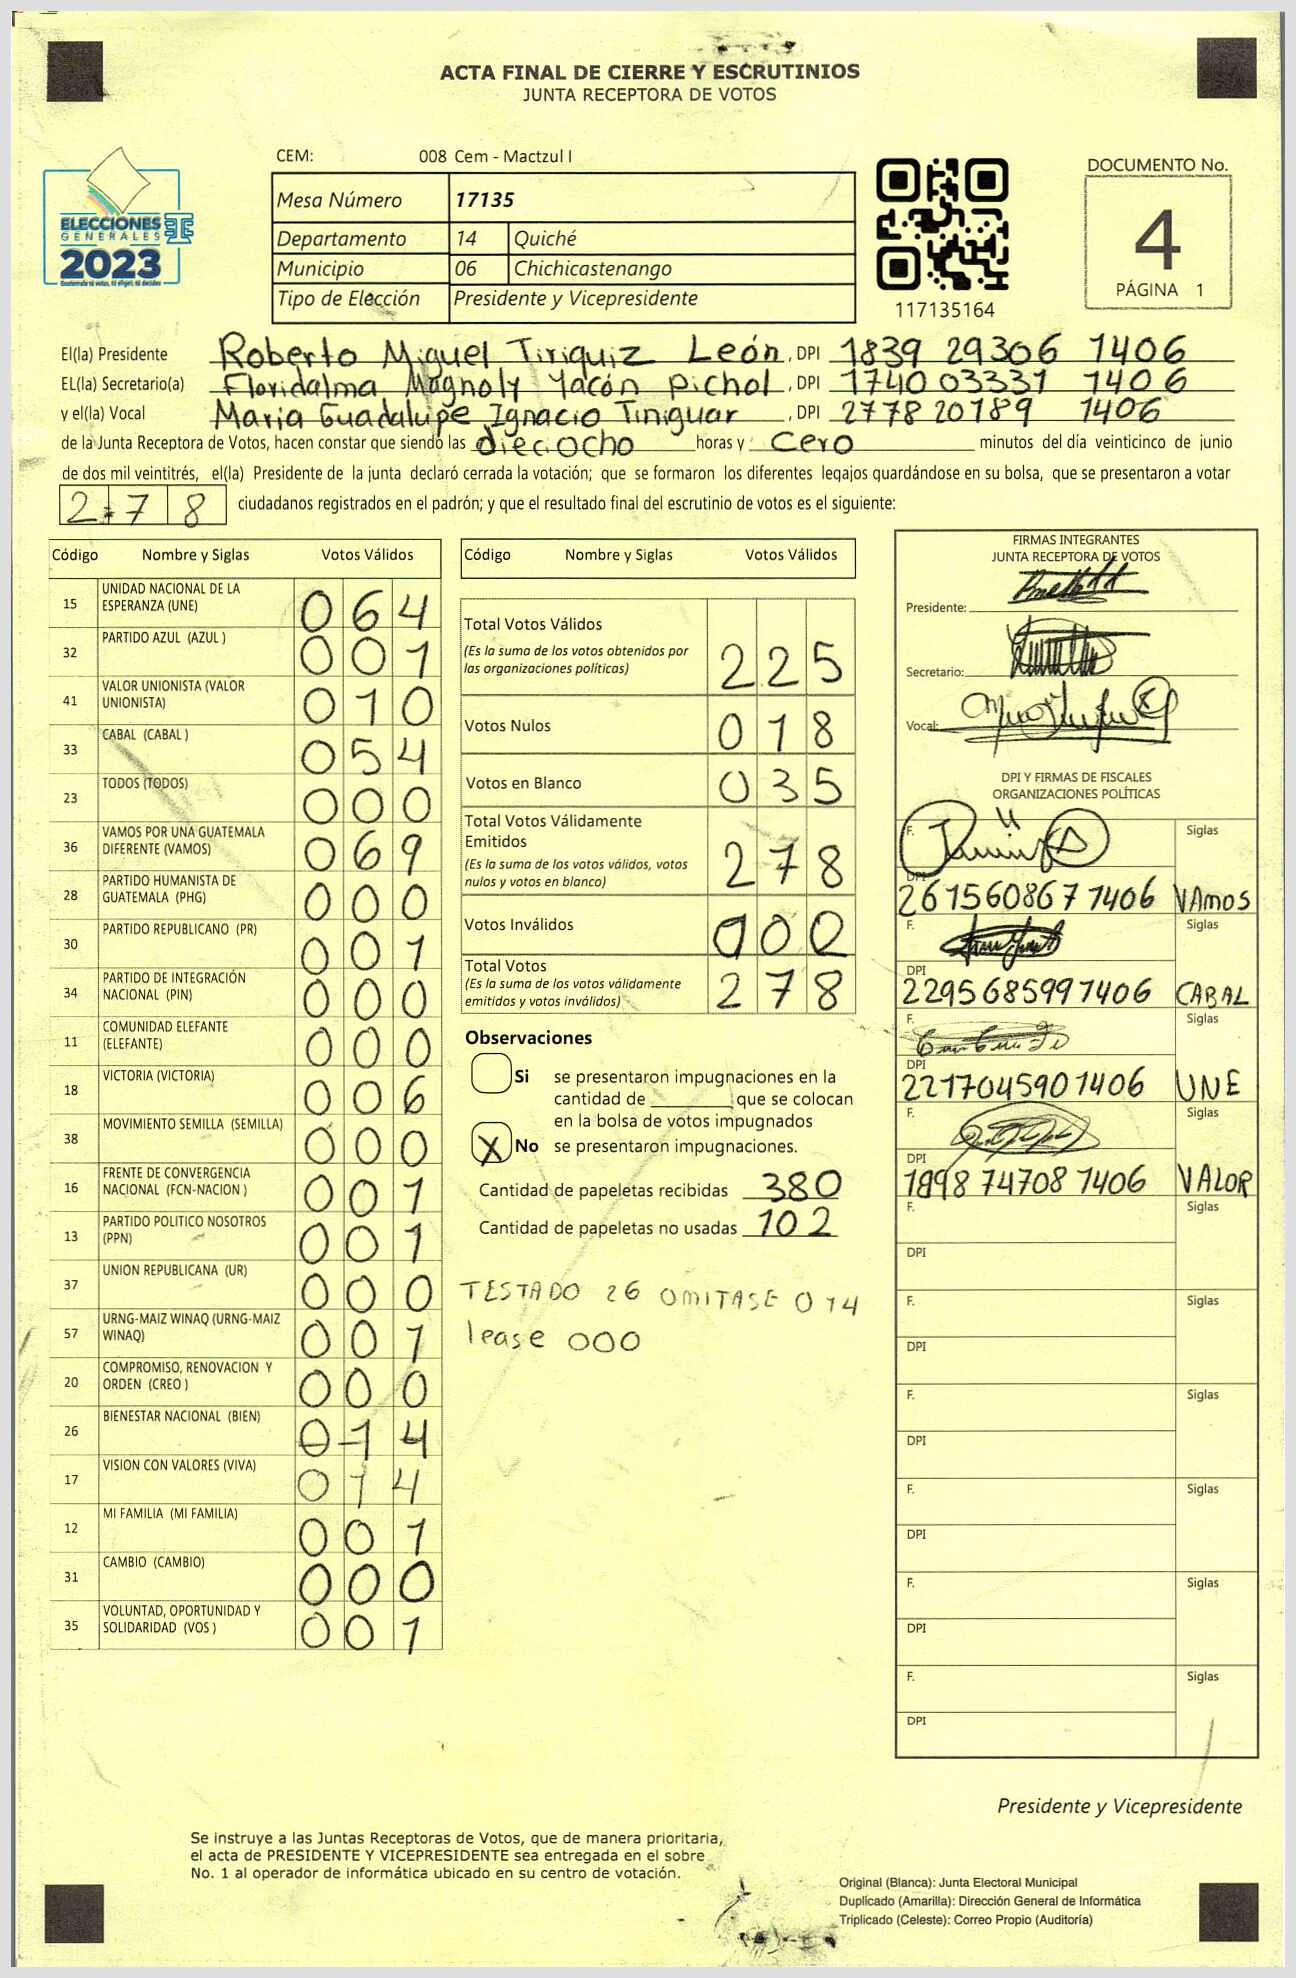 ACTA FINAL DE CIERRE Y ESCRUTINIOS
JUNTA RECEPTORA DE VOTOS
CEM: 008 Cem - Mactzul I
ELECCIONES
GENERALES
2023
Mesa Número 17135
Departamento 14 Quiché
Municipio 06 Chichicastenango
Tipo de Elección Presidente y Vicepresidente
117135164
DOCUMENTO No.
4
PÁGINA 1
El(la) Presidente Roberto Miguel Tiriquiz León, DPI 1839 29306 1406
EL(la) Secretario(a) Floridalma Magnoly Yacón Pichol, DPI 1740 03331 1406
y el(la) Vocal Maria Guadalupe Ignacio Tiniguar, DPI 2778 20189 1406
de la Junta Receptora de Votos, hacen constar que siendo las dieciocho horas y cero minutos del día veinticinco de junio
de dos mil veintitrés, el(la) Presidente de la junta declaró cerrada la votación; que se formaron los diferentes legajos guardándose en su bolsa, que se presentaron a votar
278 ciudadanos registrados en el padrón; y que el resultado final del escrutinio de votos es el siguiente:
Código Nombre y Siglas Votos Válidos
15 UNIDAD NACIONAL DE LA ESPERANZA (UNE) 064
32 PARTIDO AZUL (AZUL ) 001
41 VALOR UNIONISTA (VALOR UNIONISTA) 010
33 CABAL (CABAL ) 054
23 TODOS (TODOS) 000
36 VAMOS POR UNA GUATEMALA DIFERENTE (VAMOS) 069
28 PARTIDO HUMANISTA DE GUATEMALA (PHG) 000
30 PARTIDO REPUBLICANO (PR) 001
34 PARTIDO DE INTEGRACIÓN NACIONAL (PIN) 000
11 COMUNIDAD ELEFANTE (ELEFANTE) 000
18 VICTORIA (VICTORIA) 006
38 MOVIMIENTO SEMILLA (SEMILLA) 000
16 FRENTE DE CONVERGENCIA NACIONAL (FCN-NACION ) 001
13 PARTIDO POLITICO NOSOTROS (PPN) 001
37 UNION REPUBLICANA (UR) 000
57 URNG-MAIZ WINAQ (URNG-MAIZ WINAQ) 001
20 COMPROMISO, RENOVACION Y ORDEN (CREO ) 000
26 BIENESTAR NACIONAL (BIEN) 014
17 VISION CON VALORES (VIVA) 014
12 MI FAMILIA (MI FAMILIA) 001
31 CAMBIO (CAMBIO) 000
35 VOLUNTAD, OPORTUNIDAD Y SOLIDARIDAD (VOS ) 001
Código Nombre y Siglas Votos Válidos
Total Votos Válidos 225
(Es la suma de los votos obtenidos por
las organizaciones políticas)
Votos Nulos 018
Votos en Blanco 035
Total Votos Válidamente
Emitidos 278
(Es la suma de los votos válidos, votos
nulos y votos en blanco)
Votos Inválidos 000
Total Votos 278
(Es la suma de los votos válidamente
emitidos y votos inválidos)
Observaciones
Si se presentaron impugnaciones en la
cantidad de ________ que se colocan
en la bolsa de votos impugnados
X No se presentaron impugnaciones.
Cantidad de papeletas recibidas 380
Cantidad de papeletas no usadas 102
TESTADO 26 OMITASE 014
lease 000
FIRMAS INTEGRANTES
JUNTA RECEPTORA DE VOTOS
Presidente:
Secretario:
Vocal:
DPI Y FIRMAS DE FISCALES
ORGANIZACIONES POLÍTICAS
F. Siglas
DPI 261560867 1406 VAmos
F. Siglas
DPI 229568599 1406 CABAL
F. Siglas
DPI 221704590 1406 UNE
F. Siglas
DPI 1898 74708 1406 VALOR
F. Siglas
DPI
F. Siglas
DPI
F. Siglas
DPI
F. Siglas
DPI
F. Siglas
DPI
F. Siglas
DPI
Presidente y Vicepresidente
Se instruye a las Juntas Receptoras de Votos, que de manera prioritaria,
el acta de PRESIDENTE Y VICEPRESIDENTE sea entregada en el sobre
No. 1 al operador de informática ubicado en su centro de votación.
Original (Blanca): Junta Electoral Municipal
Duplicado (Amarilla): Dirección General de Informática
Triplicado (Celeste): Correo Propio (Auditoría)